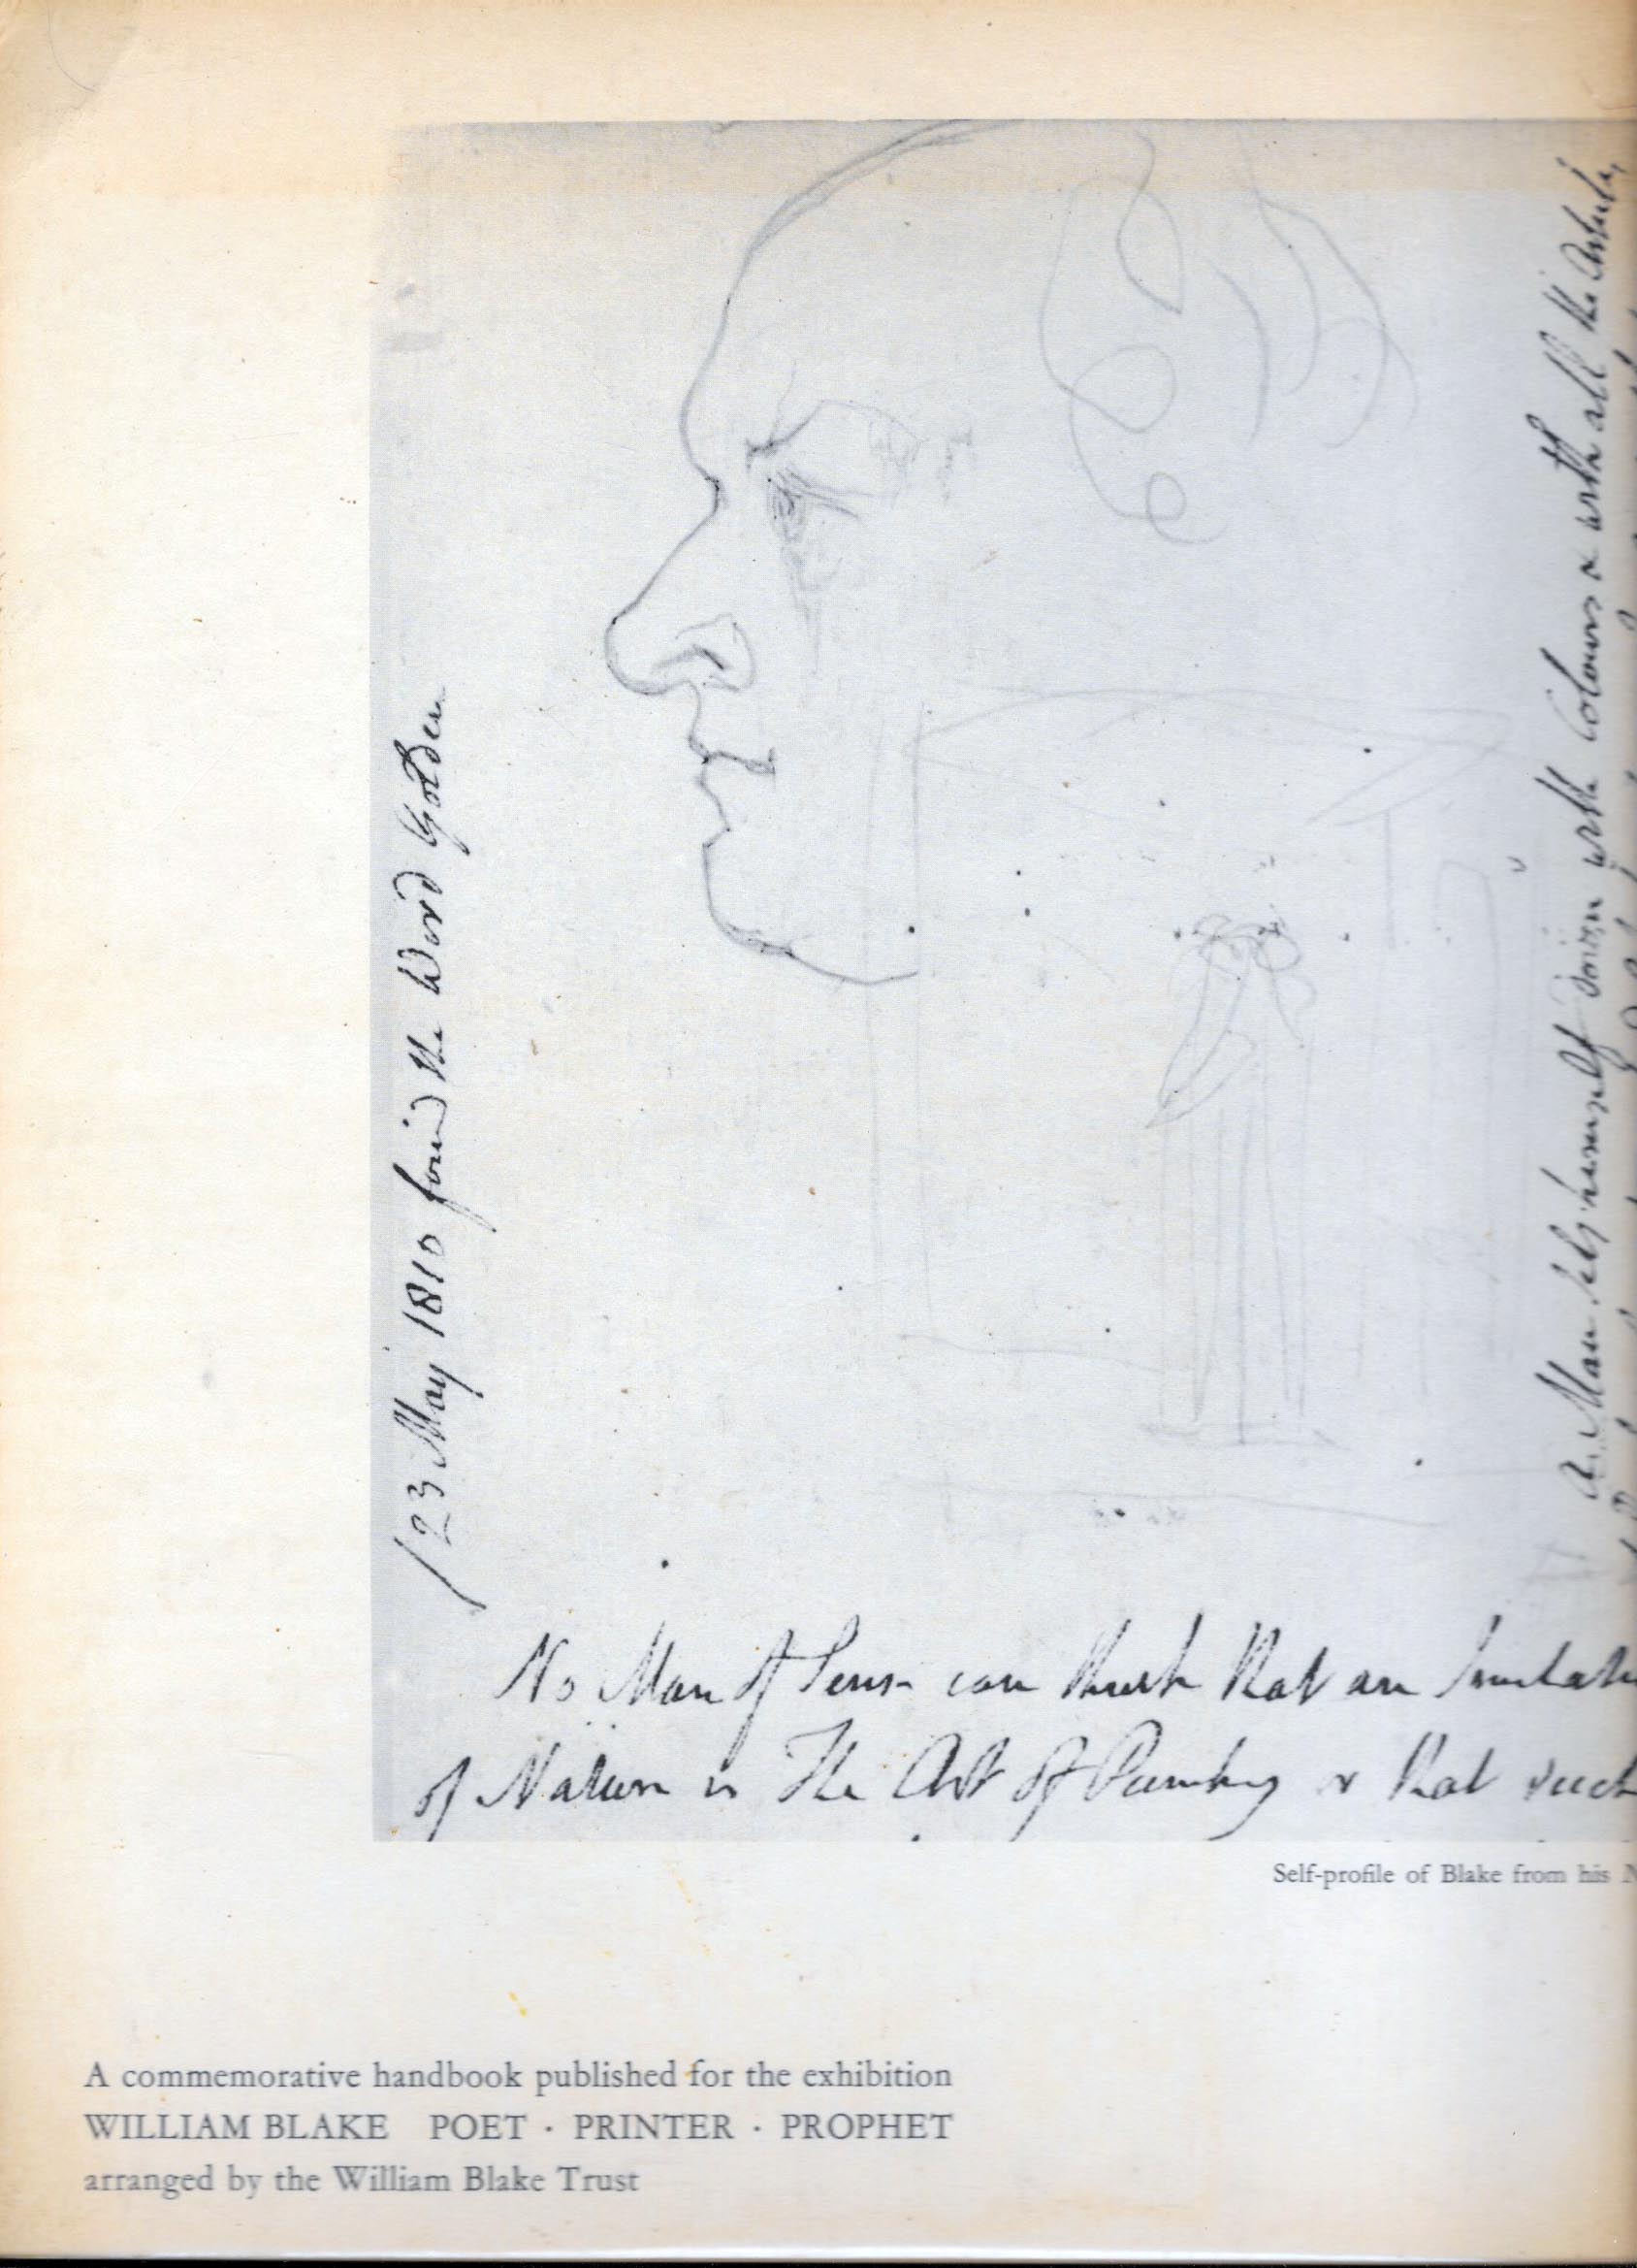 23 May 1810 found the Word Golden
A Man sets himself down with Colours & with all the
No Man of Sense can think that an Imitatio
of Nature is The Art of Painting & that such
Self-profile of Blake from his N
A commemorative handbook published for the exhibition
WILLIAM BLAKE POET · PRINTER · PROPHET
arranged by the William Blake Trust